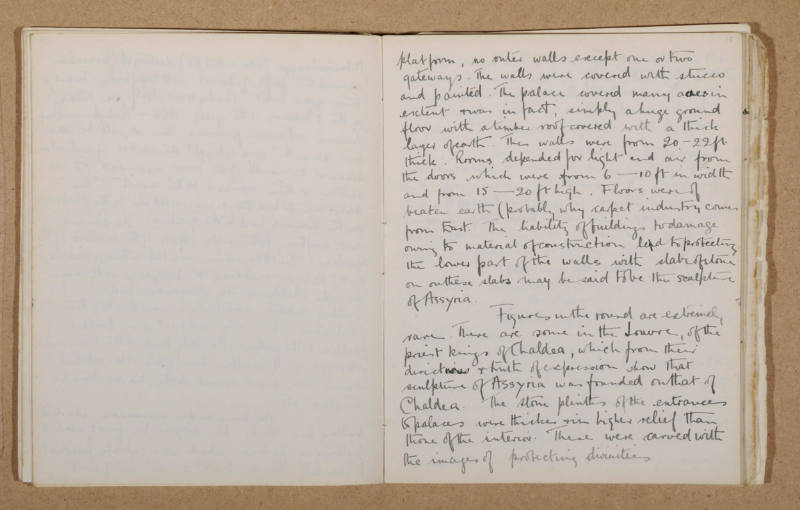 platform, no outer walls except one or two
gateways. The walls were covered with stucco
and painted. The palace covered many acres in
extent & was in fact, simply a huge ground
floor with a timber roof covered with a thick
layer of earth. The walls were from 20-22 ft
thick. Rooms depended for light and air from
the doors, which were from 6 — 10 ft in width
and from 15 — 20 ft high. Floors were of
beaten earth (probably why carpet industry comes
from East. The liability of buildings to damage
owing to material of construction led to protecting
the lower part of the walls with slabs of stone
on these slabs may be said to be the sculpture
of Assyria.
Figures in the round are extremely
rare. There are some in the Louvre, of the
priest kings of Chaldea, which from their
& truth of expression show that
sculpture of Assyria was founded on that of
Chaldea. The stone plinths of the entrances
to palaces were thicker & in higher relief than
those of the interior. These were carved with
the images of protecting divinities